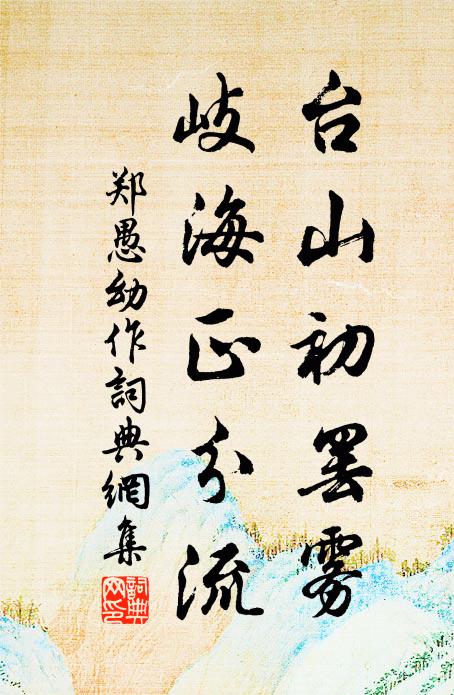 台山初罢雾
岐海正分流
郑愚幼作詞典網集
詞典